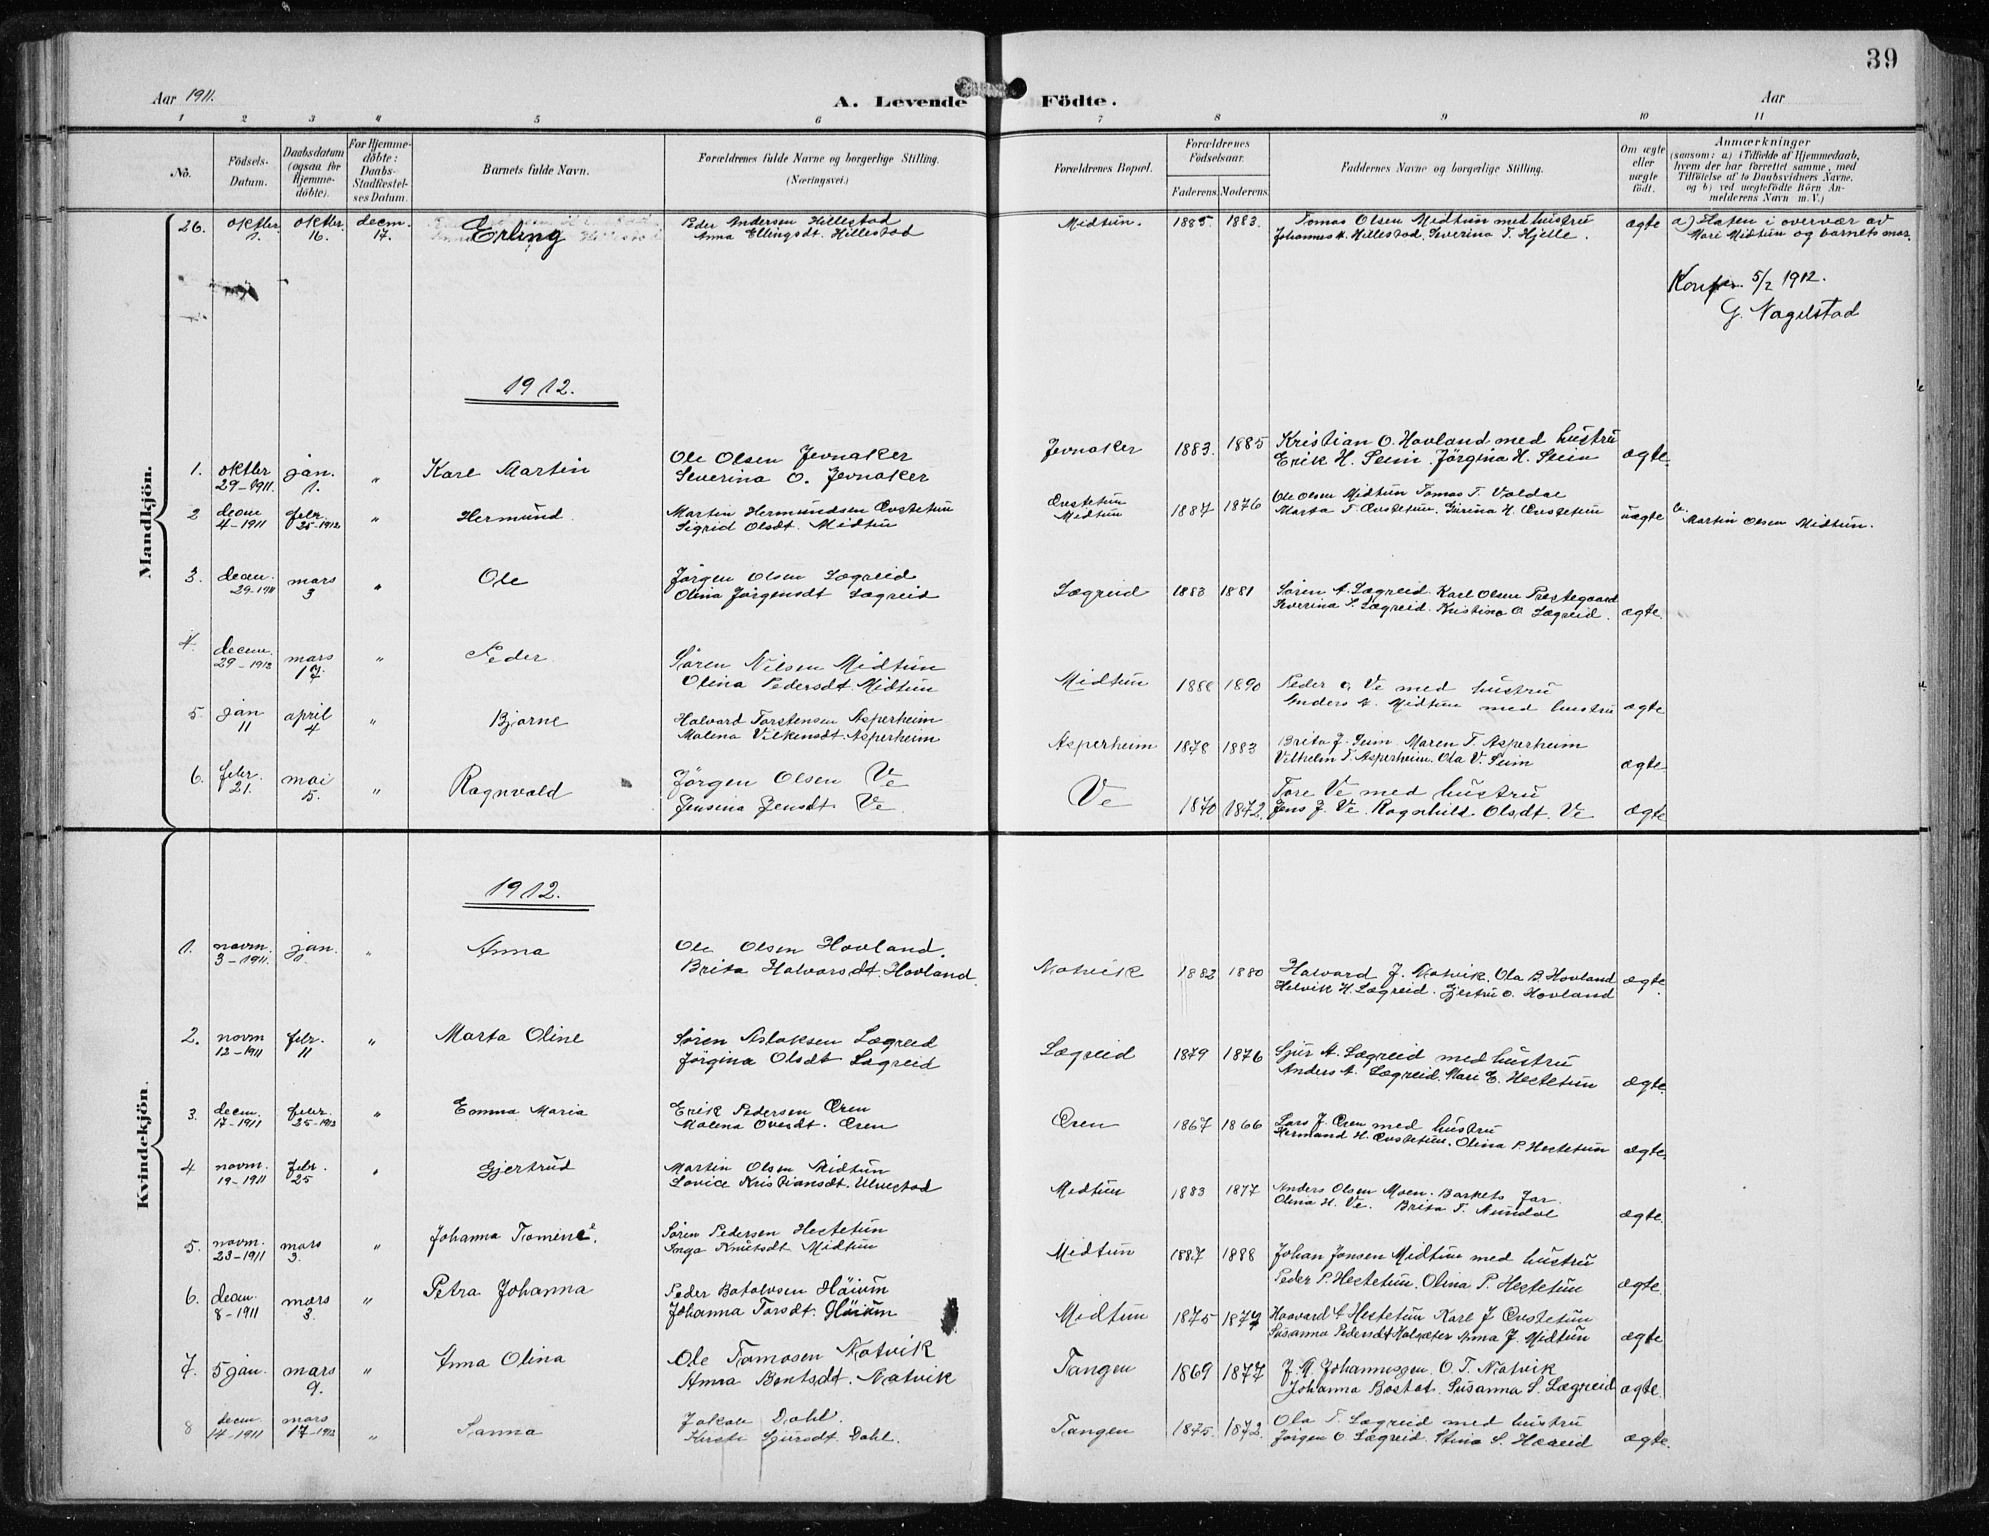 39
Aar 1911.
A. Levende Födte.
Aar
1 2 3 4 5 6 7 8 9 10 11
No.
Födsels-Datum.
Daabsdatum (ogsaa for Hjemme-döbte).
For Hjemme-döbte: Daabs-Stadfæstel-ses Datum.
Barnets fulde Navn.
Forældrenes fulde Navne og borgerlige Stilling. (Næringsvei.)
Forældrenes Bopæl.
Forældrenes Födselsaar.
Faderens. Moderens.
Faddernes Navne og borgerlige Stilling.
Om ægte eller uægte födt.
Anmærkninger
(saasom: a) i Tilfælde af Hjemmedaab,
hvem der har forrettet samme, med
Tilföielse af to Daabsvidners Navne,
og b) ved uægtefödte Börn An-
melderens Navn m. V.)
Mandkjön.
26. oktbr. 1. oktbr. 16. decm. 17. Erling
Peder Andersen Hillestad
Anna Ellingsdt. Hillestad
Midtun. 1885. 1883.
Tomas Olsen Midtun med hustru
Johannes A. Hillestad. Severina T. Hjelle.
ægte
a) Faren i overvær av
Mari Midtun og barnets mor.
Konf. 5/2 1912.
G. Nagelstad
1912.
1. oktbr 29-1911. jan. 1. " Karl Martin
Ole Olsen Jevnaker
Severina O. Jevnaker
Jevnaker 1883. 1885
Kristian O. Hovland med hustru
Erik H. Seim. Jörgina H. Seim
ægte.
2 decm 4-1911 febr. 25-1912 " Hermund.
Martin Hermundsen Øvstetun
Sigrid Olsdt. Midtun
Øvstetun
Midtun
1887 1876
Ole Olsen Midtun Tomas T. Voldal
Marta T. Øvstetun. Gurina H. Øvstetun
uægte
b. Martin Olsen Midtun.
3. decm. 29-1911 mars 3 " Ole
Jörgen Olsen Lægreid
Olina Jörgensdt Lægreid
Lægreid 1883 1881
Sören A. Lægreid. Karl Olsen Prestegaard
Severina S. Lægreid. Kristina O. Lægreid.
ægte.
4. decem. 29-1912 mars 17. " Peder
Sören Nilsen Midtun
Olina Pedersdt. Midtun
Midtun 1888 1890
Peder O. Ve med hustru
Anders N. Midtun med hustru
ægte
5. jan 11 april 4 " Bjarne
Halvard Torstensen Asperheim
Malena Vilkensdt. Asperheim
Asperheim 1878 1883
Brita J. Seim. Maren T. Asperheim
Vilhelm T. Asperheim. Ola V. Seim
ægte
6. febr. 21. mai 5. " Ragnvald
Jörgen Olsen Ve
Jensina Jensdt. Ve
Ve 1870 1872.
Tore Ve med hustru
Jens J. Ve. Ragnhild Olsdt. Ve
ægte
Kvindekjön.
1912.
1. novm. 3-1911. jan. 1. " Anna
Ole Olsen Hovland.
Brita Halvorsdt. Hovland.
Natvik 1882 1880
Halvard J. Natvik. Ola B. Hovland
Helvik H. Lægreid. Gjertru O. Hovland
ægte.
2. novm 12-1911 febr. 11 " Marta Oline
Sören Aslaksen Lægreid
Jörgina Olsdt Lægreid
Lægreid 1879 1876
Sjur A. Lægreid med hustru
Anders A. Lægreid. Mari E. Hestetun
ægte.
3. decem. 17-1911 febr. 25-1912 " Emma Maria
Erik Pedersen Øren
Malena Ovesdt. Øren
Øren 1867 1866
Lars J. Øren med hustru
Hermund H. Øvstetun. Olina P. Hestetun
ægte.
4 novm. 19-1911 febr. 25 " Gjertrud
Martin Olsen Midtun
Lovice Kristiansdt. Ulvestad
Midtun 1883 1877
Anders Olsen Moen. Barnets far.
Olina H. Ve. Brita T. Nundal
ægte.
5. novm. 23-1911 mars 3. " Johanna Tomine.
Sören Pedersen Hestetun
Inga Knutsdt Midtun
Midtun 1887 1888
Johan Jonsen Midtun med hustru
Peder P. Hestetun. Olina P. Hestetun
ægte.
6. decm. 8-1911 mars 3. " Petra Johanna
Peder Botolvsen Häium
Johanna Torsdt. Häium
Midtun 1875 1877
Haavard Hestetun Karl J Øvstetun
Susanna Pedersdt Halsæter Anna J. Midtun
ægte
7. 5 jan. mars 9. " Anna Olina
Ole Tomasen Natvik
Anna Bentsdt. Natvik
Tangen 1869 1877
J. M. Johannessen. O. T. Natvik
Johanna Bostat. Susanna S. Lægreid
ægte
8 decm. 14-1911 mars 17-1912 " Sanna
Jakob Dahl.
Kirsti Sjursdt. Dahl.
Tangen 1875. 1872.
Ola T. Lægreid med hustru
Jörgen O. Lægreid. Stina S. Hæreid
ægte.